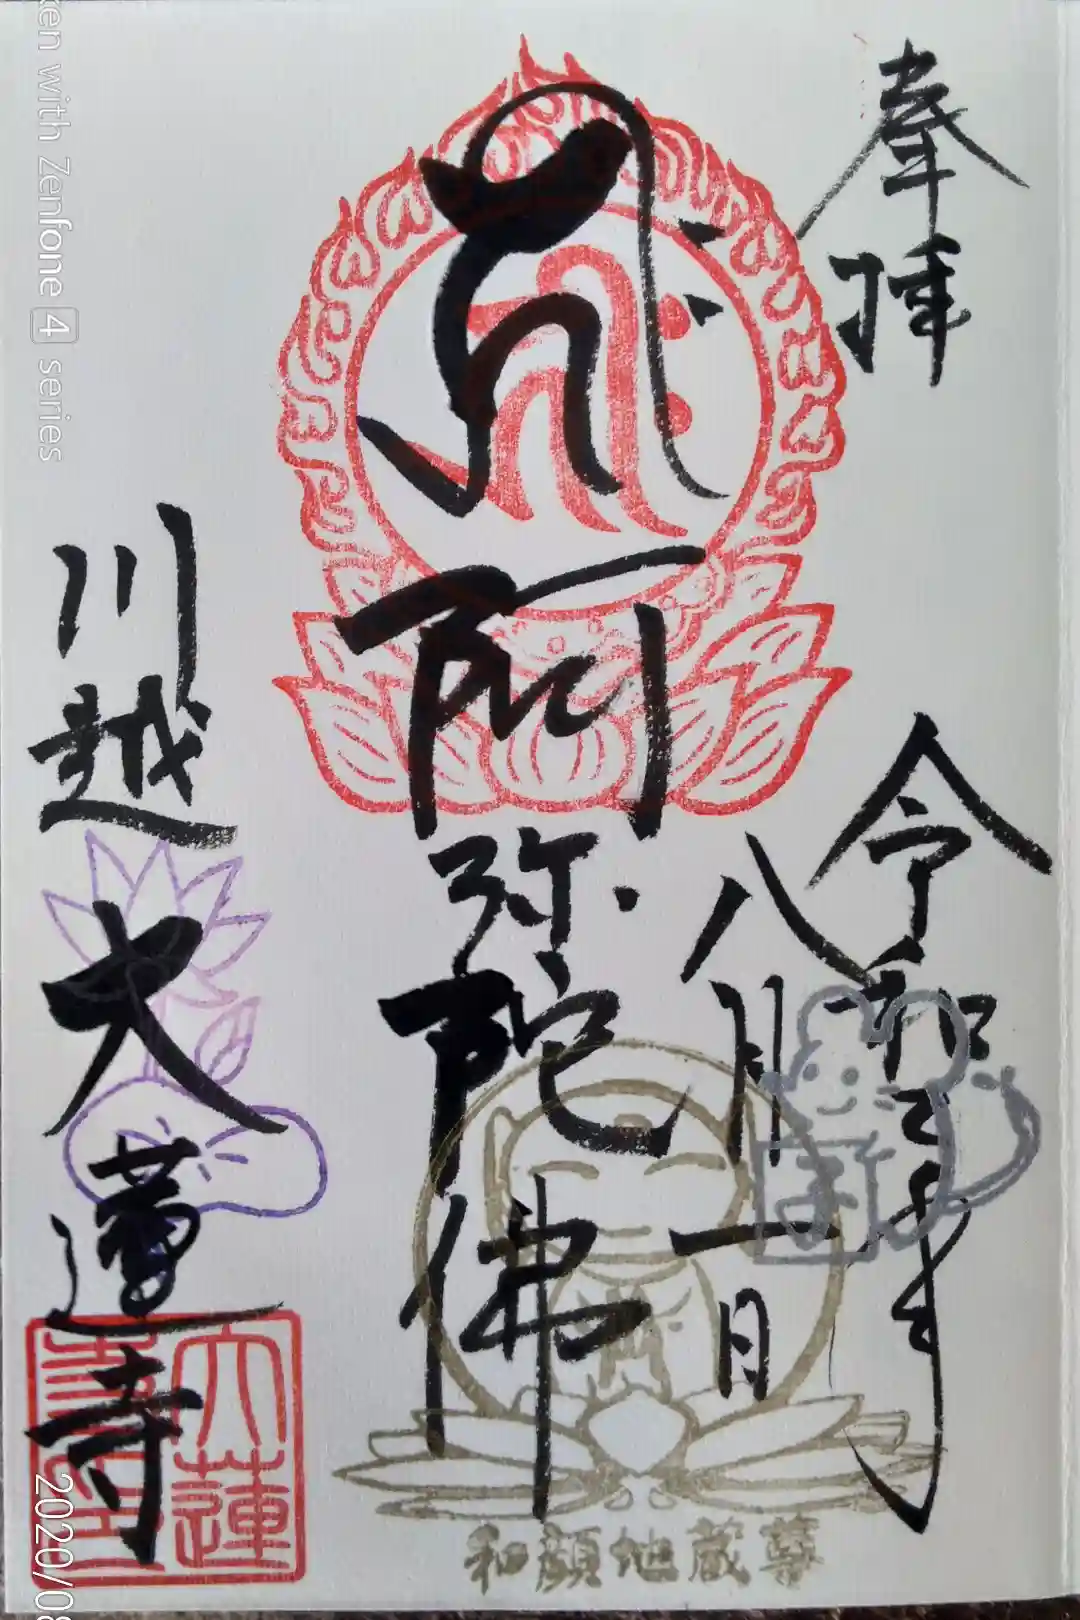 奉拝
令和二年
八月一日
阿弥陀佛
川越
大蓮寺
大蓮寺印
和顔地蔵尊
ken with Zenfone 4 series
2020/08